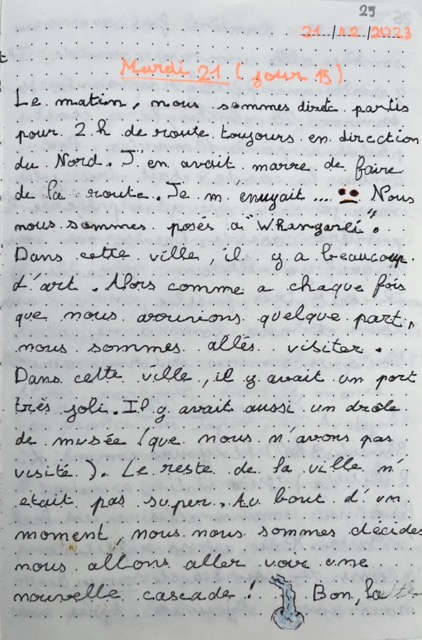 25
21/12/2023
Mardi 21 (jour 15)
Le matin, nous sommes direct partis
pour 2h de route toujours en direction
du Nord. J'en avait marre de faire
de la route. Je m'enuyait .... Nous
nous sommes posés à "Whangarei".
Dans cette ville, il y a beaucoup
d'art. Alors comme a chaque fois
que nous arrivions quelque part,
nous sommes allés visiter.
Dans cette ville, il y avait un port
très joli. Il y avait aussi un drôle
de musée (que nous n'avons pas
visité). Le reste de la ville n'
était pas super. Au bout d'un
moment, nous nous sommes décidés
nous allons aller voir une
nouvelle cascade ! Bon, la